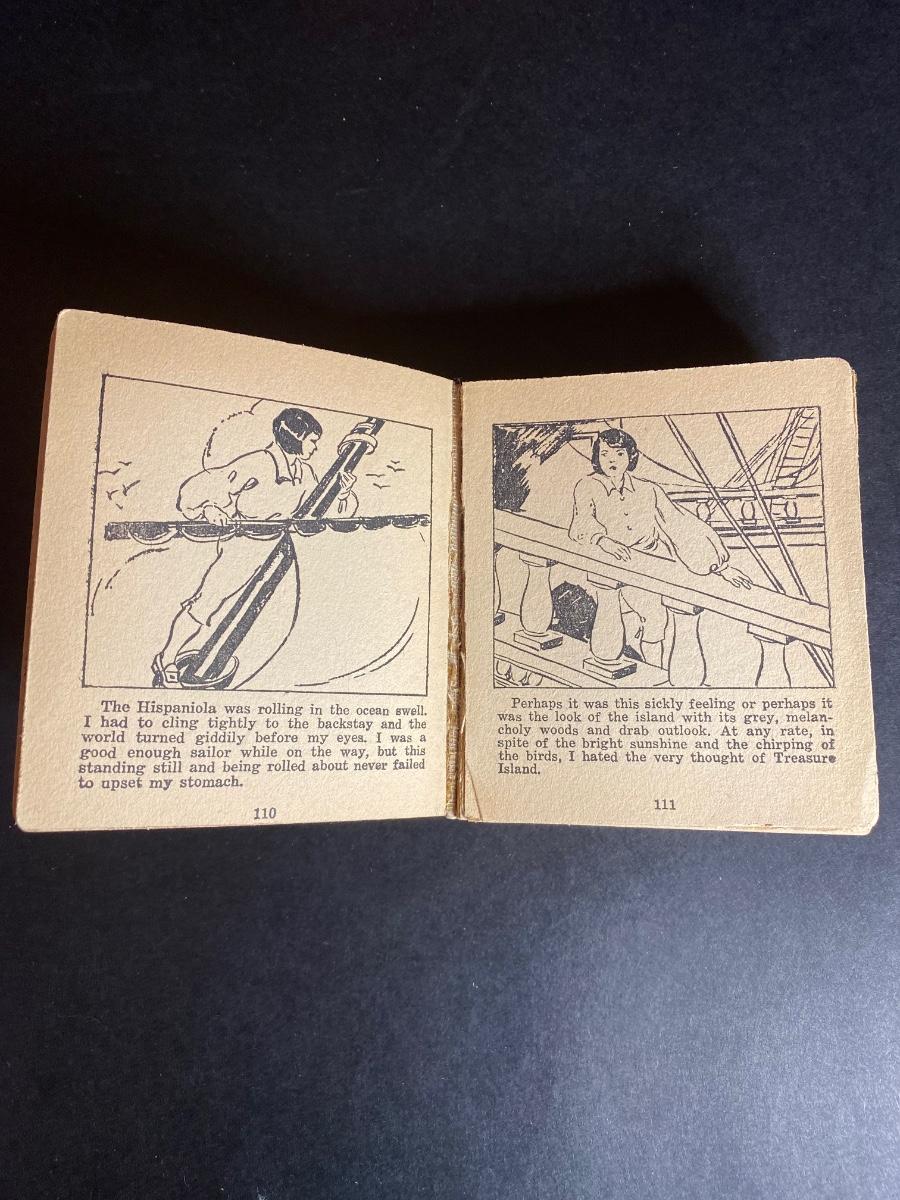 The Hispaniola was rolling in the ocean swell.
I had to cling tightly to the backstay and the
world turned giddily before my eyes. I was a
good enough sailor while on the way, but this
standing still and being rolled about never failed
to upset my stomach.
110
Perhaps it was this sickly feeling or perhaps it
was the look of the island with its grey, melan-
choly woods and drab outlook. At any rate, in
spite of the bright sunshine and the chirping of
the birds, I hated the very thought of Treasure
Island.
111